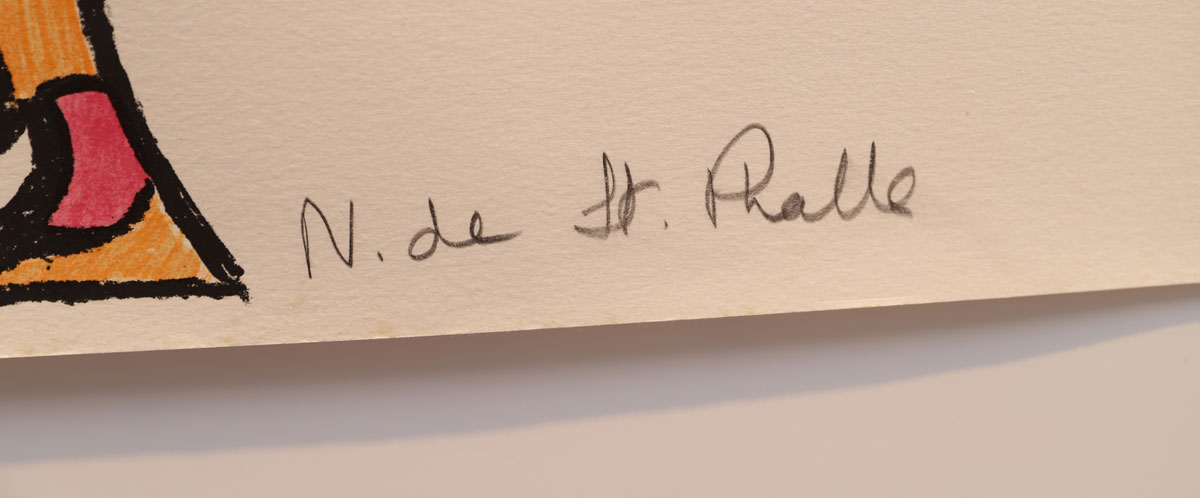 N. de St. Phalle